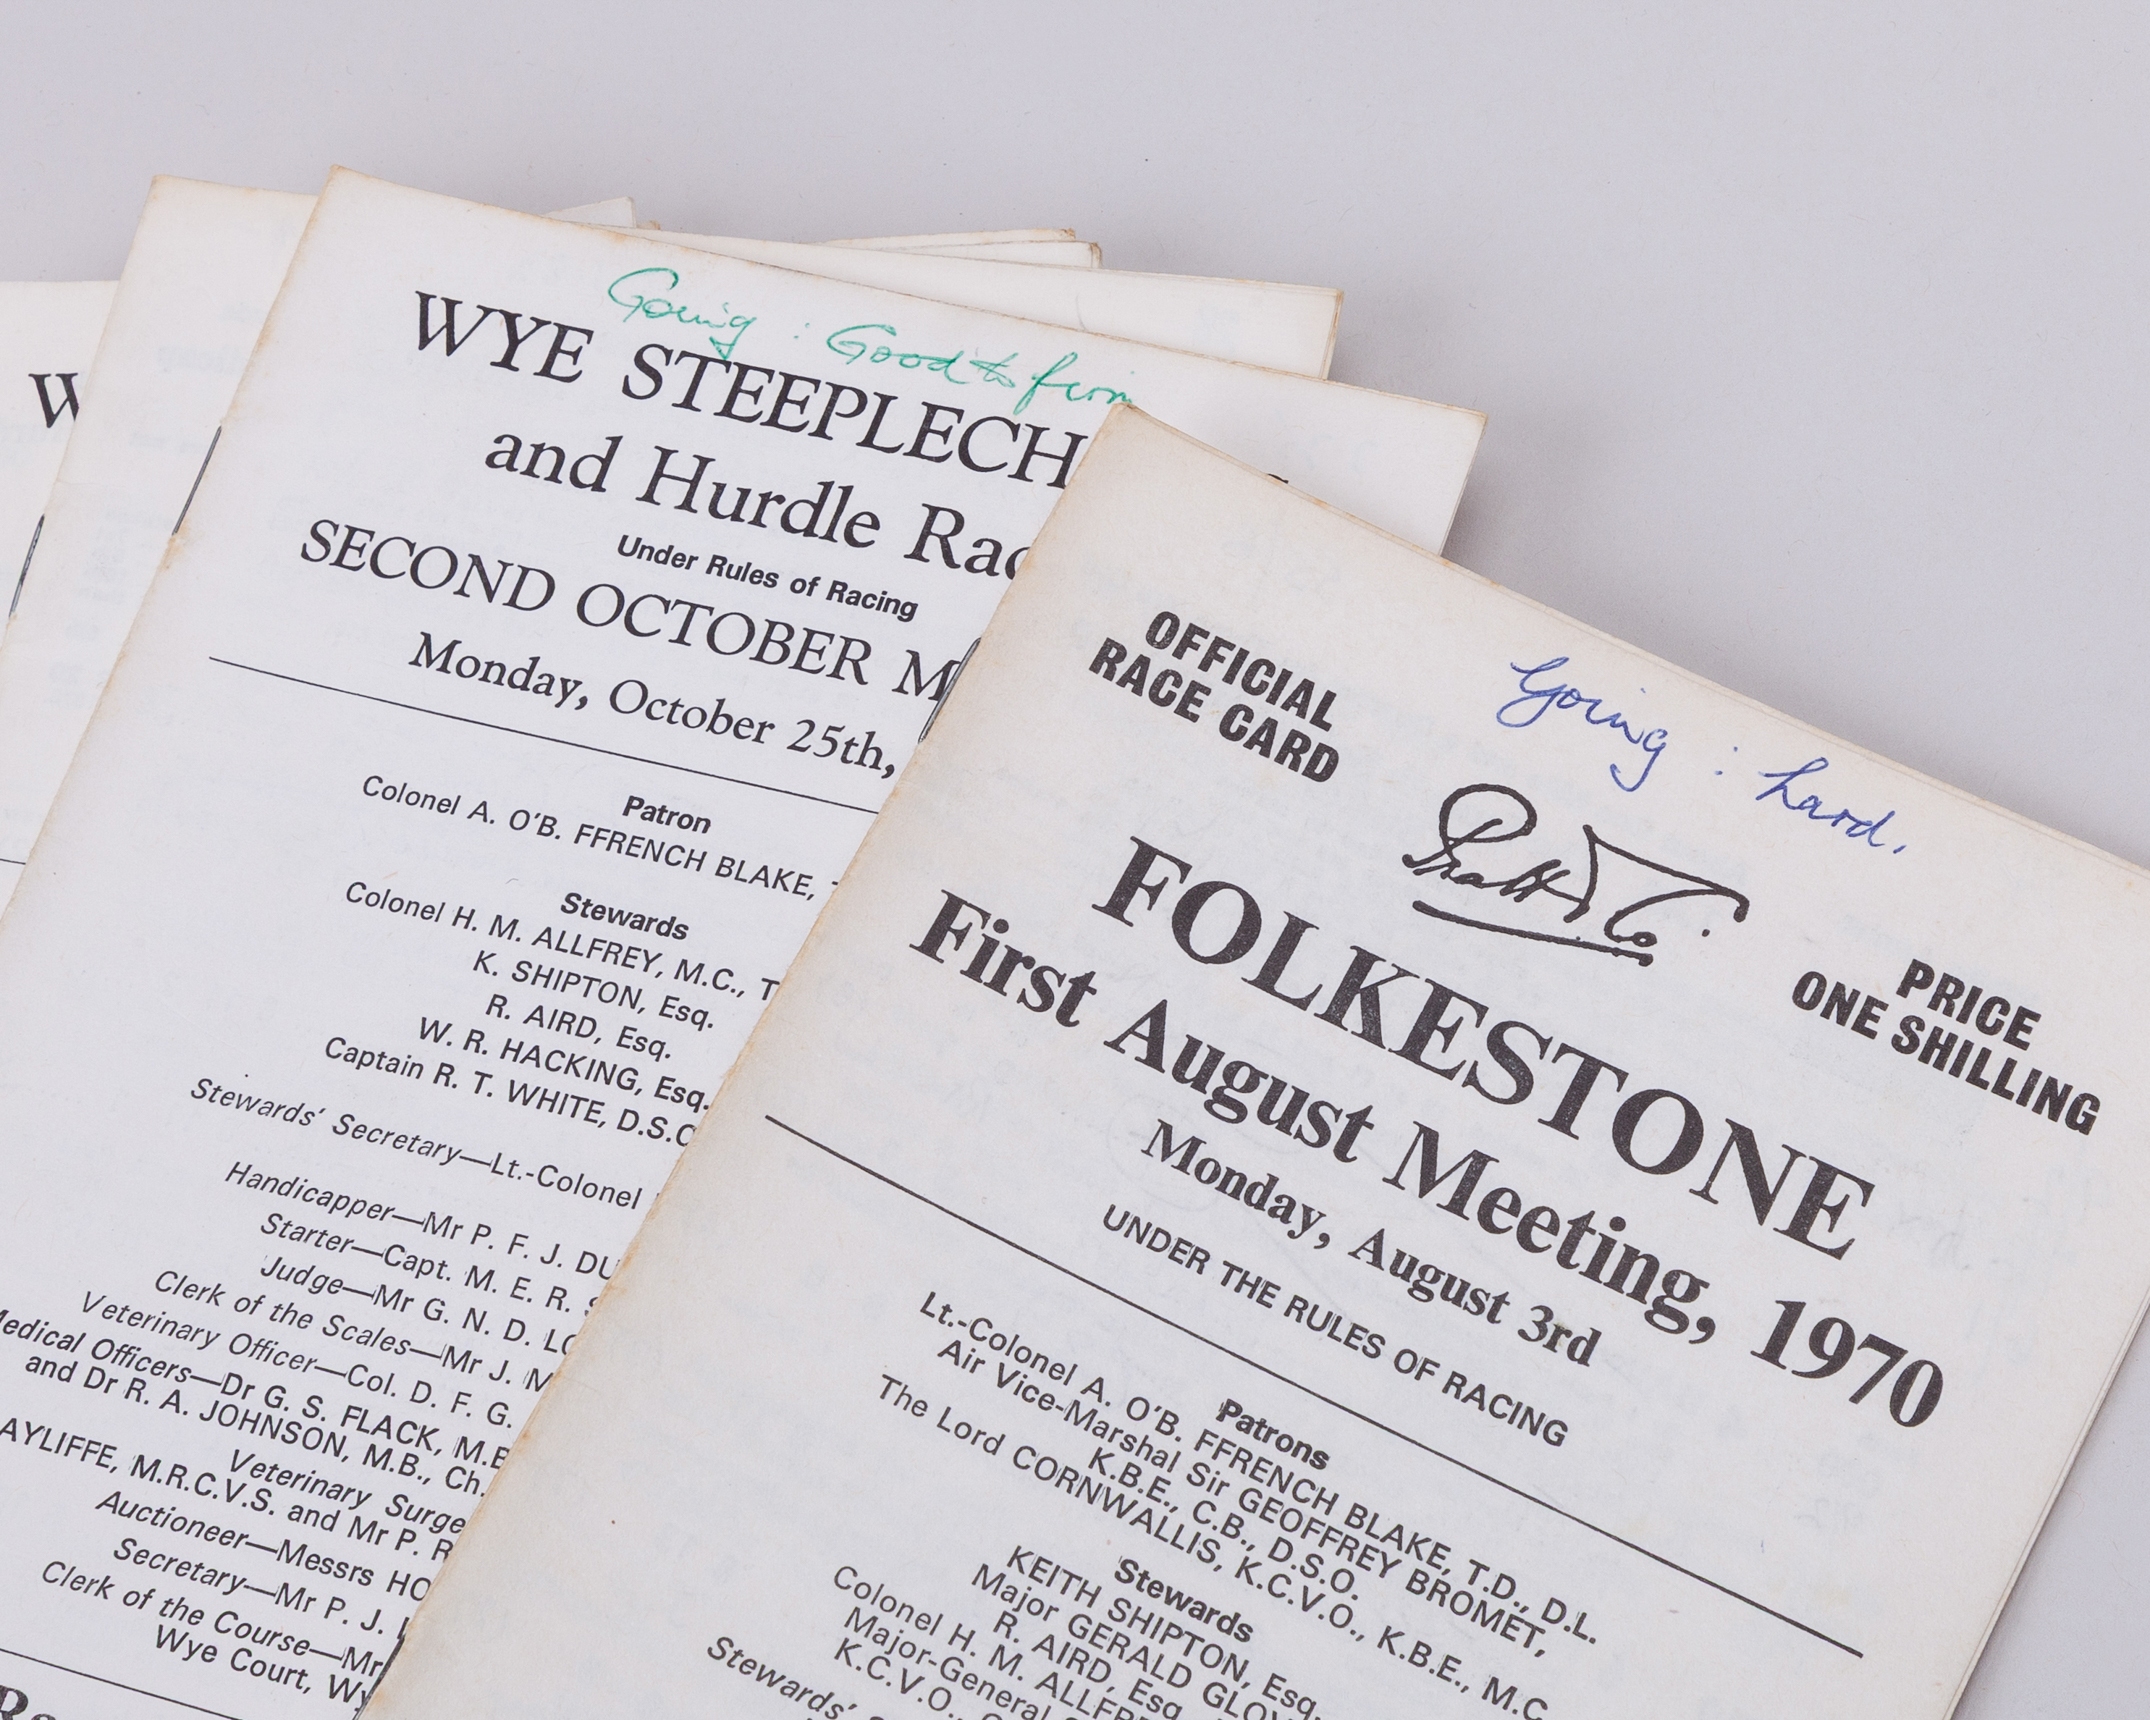 W
Going : Good to firm
WYE STEEPLECH
and Hurdle Rac
Under Rules of Racing
SECOND OCTOBER M
Monday, October 25th,
Patron
Colonel A. O'B. FFRENCH BLAKE,
Stewards
Colonel H. M. ALLFREY, M.C., T
K. SHIPTON, Esq.
R. AIRD, Esq.
W. R. HACKING, Esq.
Captain R. T. WHITE, D.S.O
Stewards' Secretary—Lt.-Colonel
Handicapper—Mr P. F. J. DU
Starter—Capt. M. E. R.
Judge—Mr G. N. D. LO
Clerk of the Scales—Mr J. M
Veterinary Officer—Col. D. F. G.
Medical Officers—Dr G. S. FLACK, M.B
and Dr R. A. JOHNSON, M.B., Ch.
Veterinary Surge
AYLIFFE, M.R.C.V.S. and Mr P. R
Auctioneer—Messrs HO
Secretary—Mr P. J.
Clerk of the Course—Mr
Wye Court, Wy
OFFICIAL
RACE CARD
Going : hard.
Pratt & Co.
PRICE
ONE SHILLING
FOLKESTONE
First August Meeting, 1970
Monday, August 3rd
UNDER THE RULES OF RACING
Patrons
Lt.-Colonel A. O'B. FFRENCH BLAKE, T.D., D.L.
Air Vice-Marshal Sir GEOFFREY BROMET,
K.B.E., C.B., D.S.O.
The Lord CORNWALLIS, K.C.V.O., K.B.E., M.C
Stewards
KEITH SHIPTON, Esq.
Major GERALD GLOV
R. AIRD, Esq
Colonel H. M. ALLFRE
Major-General
K.C.V.O.,
Stewards'